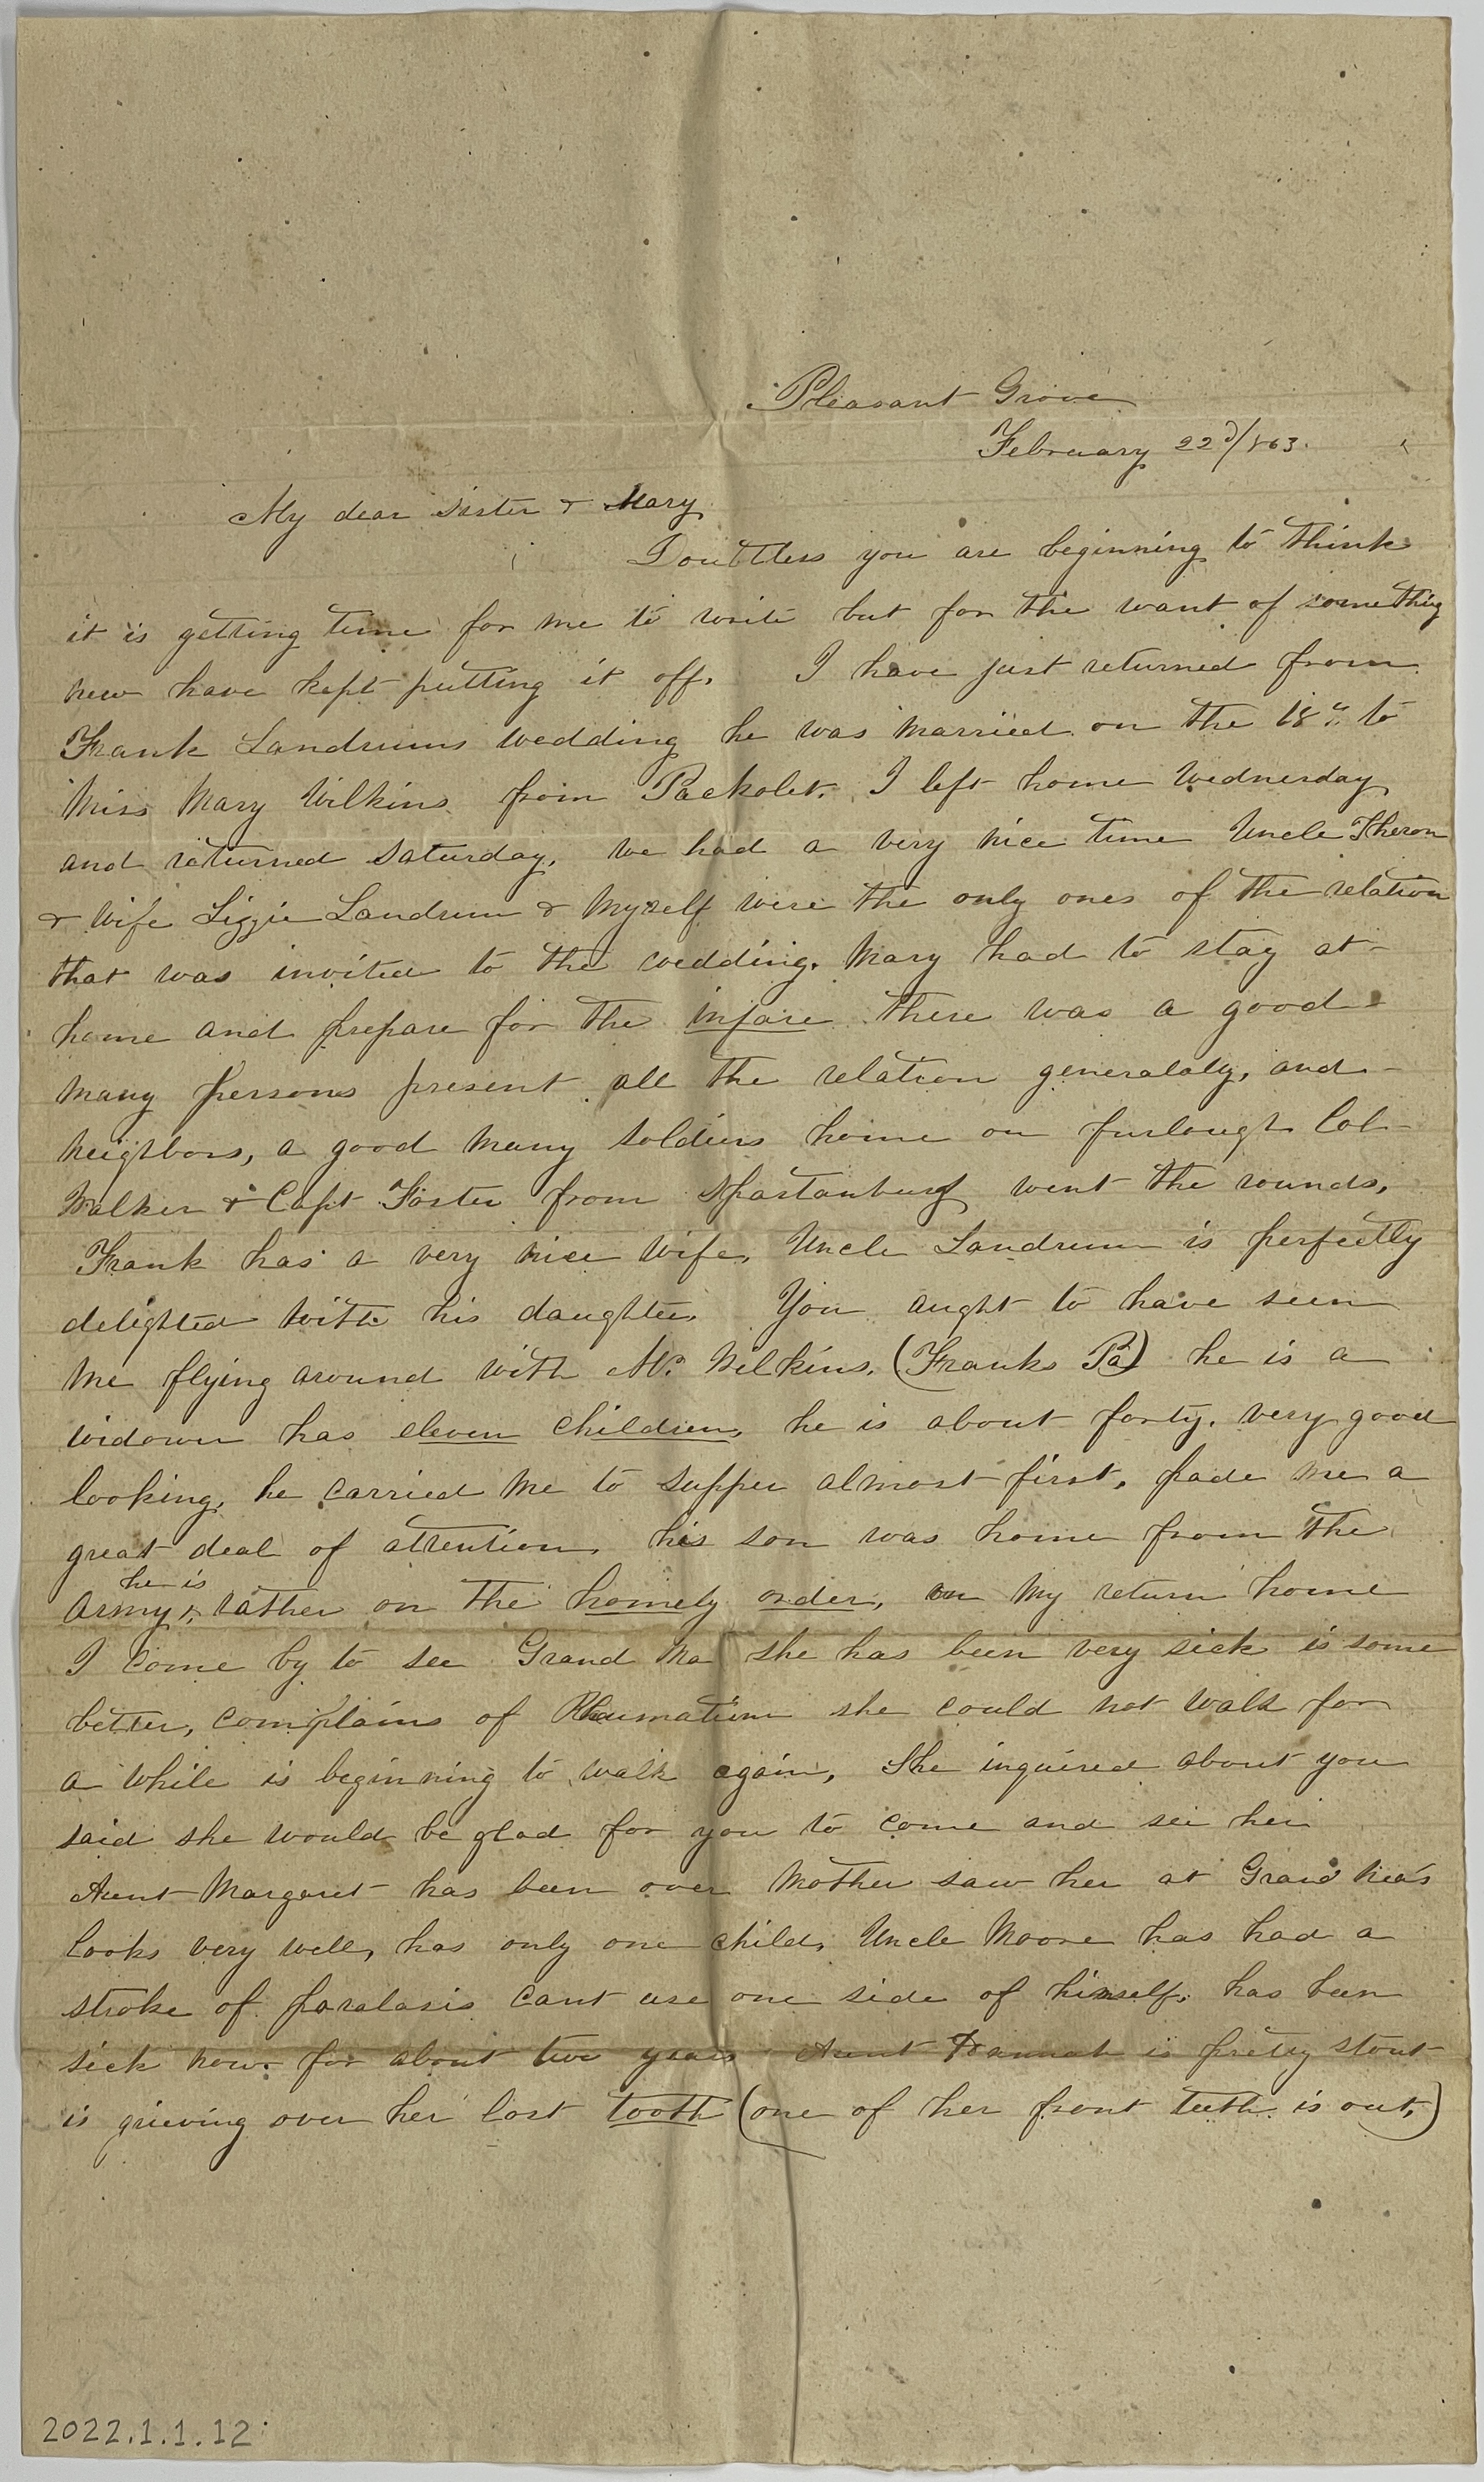 Pleasant Grove
February 22d/863.
My dear sister & Mary
Doubtless you are beginning to think
it is getting time for me to write but for the want of something
new have kept putting it off. I have just returned from
Frank Landrums wedding he was married on the 18th to
Miss Mary Wilkins from Packolet. I left home Wednesday
and returned Saturday. we had a very nice time Uncle Theron
& wife Lizzie Landrum & Myself were the only ones of the relation
that was invited to the wedding. Mary had to stay at
home and prepare for the infare there was a good
many persons present all the relation generalaly, and
neighbors, a good many soldiers home on furlough Col
Walker & Capt Foster from Spartanburg went the rounds.
Frank has a very nice wife, Uncle Landrum is perfectly
delighted with his daughter. You aught to have seen
me flying around with Mr. Wilkins. (Franks Pa) he is a
widower has eleven children, he is about forty. very good
looking, he carried me to supper almost first, pade me a
great deal of attention, his son was home from the
he is
army, rather on the homely order, on my return home
I come by to see Grand Ma she has been very sick is some
better, complains of Rheumatism she could not walk for
a while is beginning to walk again, She inquired about you
said she would be glad for you to come and see her
Aunt Margaret has been over Mother saw her at Grand Ma's
looks very well, has only one child, Uncle Moore has had a
stroke of paralasis cant use one side of himself, has been
sick now for about two years Aunt Hannah is pretty stout
is grieving over her lost tooth (one of her front teeth is out,)
2022.1.1.12